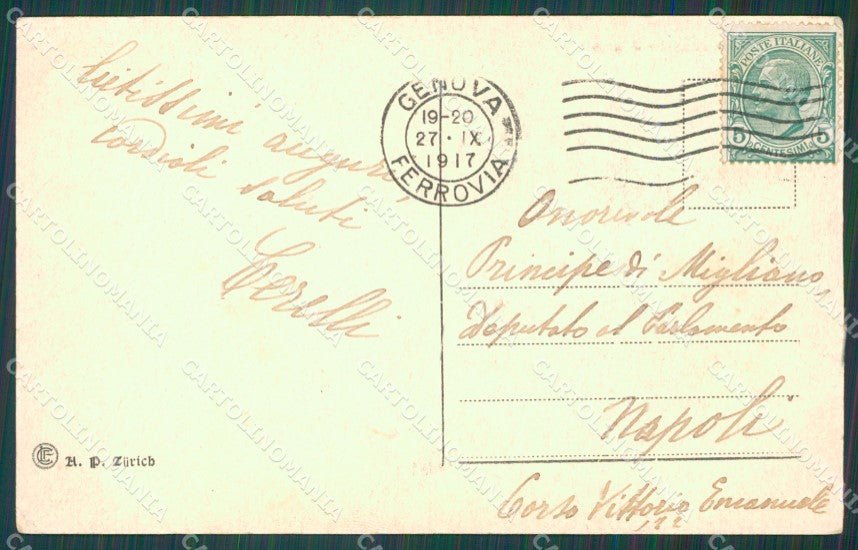 lietissimi auguri,
cordiali saluti
Cerelli
GENOVA
19-20
27·IX
1917
FERROVIA
POSTE ITALIANE
5 CENTESIMI 5
Onorevole
Principe di Migliano,
Deputato al Parlamento
Napoli
Corso Vittorio Emanuele
H. P. Zürich
CARTOLINOMANIA